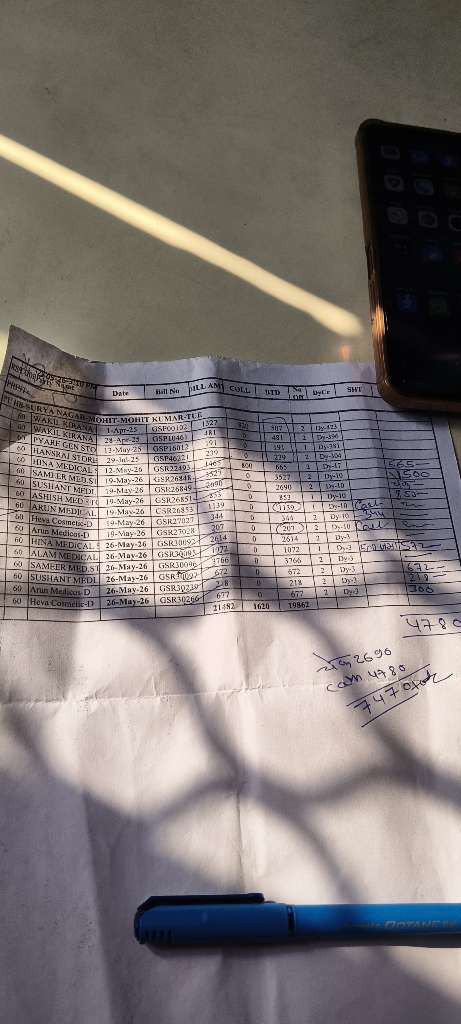 Date Bill No BILL AM COLL BTD No Off DyCr SHT
SURYA NAGAR-MOHIT-MOHIT KUMAR-TUE
60 WAKIL KIRANA 1-Apr-25 GSP00102 1327 820 507 2 Dy-423
60 WAKIL KIRANA 28-Apr-25 GSP10461 481 0 481 2 Dy-396
60 PYARE GEN STO 13-May-25 GSP16012 191 0 191 1 Dy-381
60 HANSRAJ STORE 29-Jul-25 GSP46221 239 0 239 1 Dy-304
60 HINA MEDICAL 12-May-26 GSR22493 1465 800 665 2 Dy-17 565-
60 SAMEER MED.ST 19-May-26 GSR26848 3527 0 3527 2 Dy-10 1500
60 SUSHANT MEDI 19-May-26 GSR26849 2690 0 2690 2 Dy-10
60 ASHISH MED.STO 19-May-26 GSR26851 853 0 853 2 Dy-10 850-
60 ARUN MEDICAL 19-May-26 GSR26853 1139 0 1139 1 Dy-10
60 Heva Cosmetic-D 19-May-26 GSR27027 344 0 344 2 Dy-10
60 Arun Medicos-D 19-May-26 GSR27028 207 0 207 2 Dy-10 Call
60 HINA MEDICAL S 26-May-26 GSR30092 2614 0 2614 2 Dy-3
60 ALAM MEDICAL 26-May-26 GSR30093 1072 0 1072 1 Dy-3 572-
60 SAMEER MED.ST 26-May-26 GSR30096 3766 0 3766 2 Dy-3
60 SUSHANT MEDI 26-May-26 GSR30097 672 0 672 2 Dy-3 672-
60 Arun Medicos-D 26-May-26 GSR30239 218 0 218 2 Dy-3 218-
60 Heva Cosmetic-D 26-May-26 GSR30266 677 0 677 2 Dy-3 300
21482 1620 19862
4780
2690
cash 4780
7470